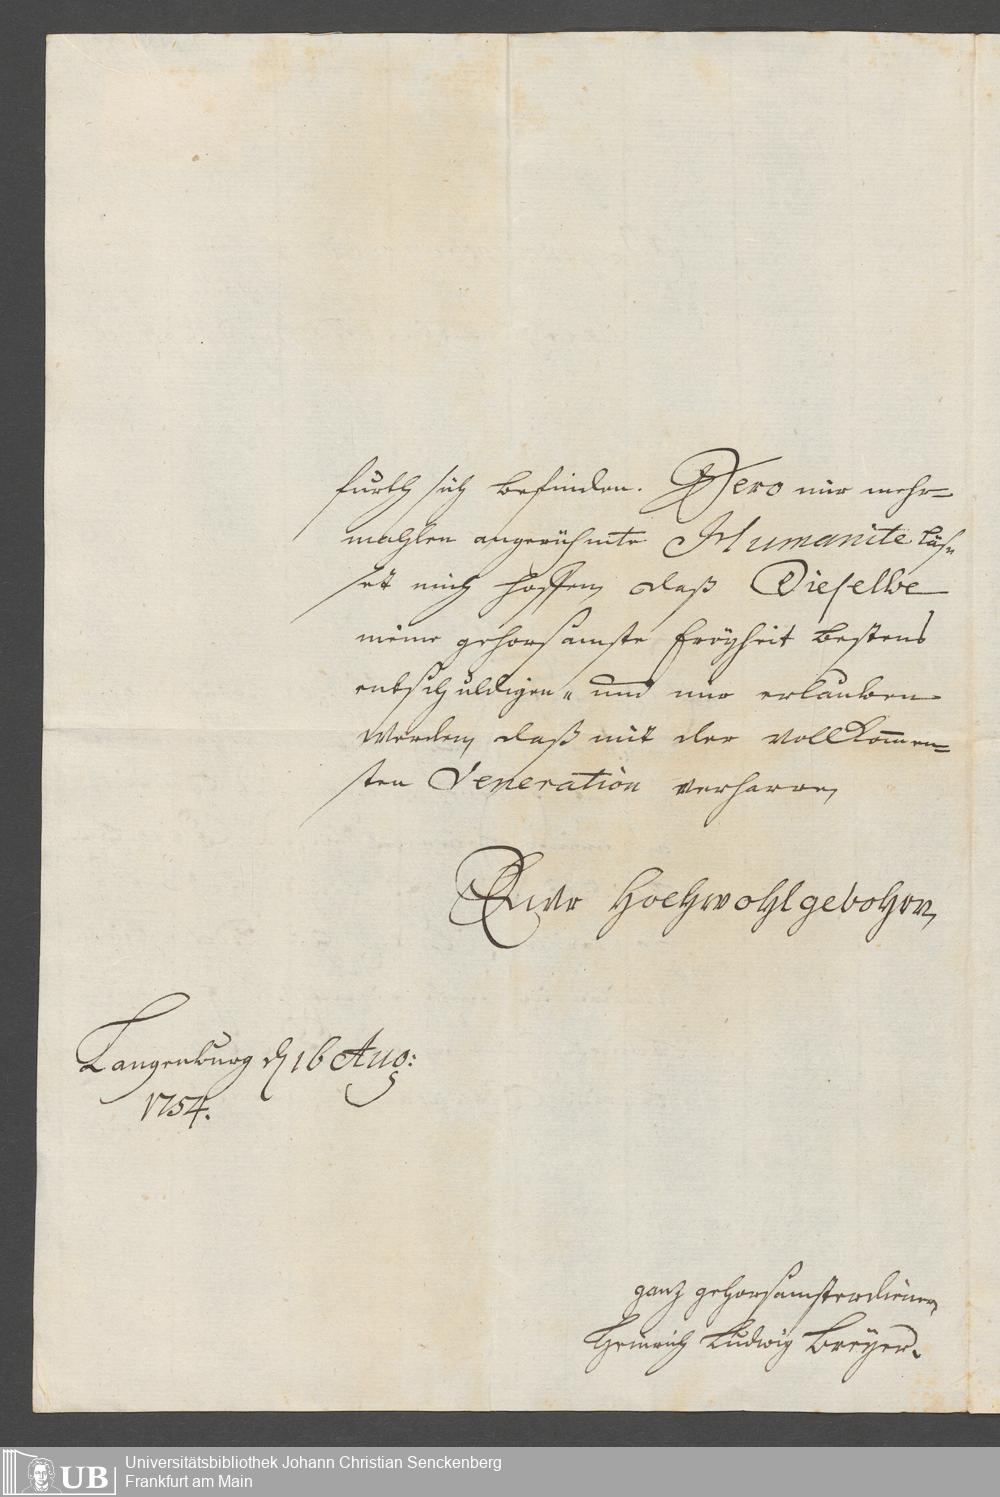 furth sich befinden. Dero mir mehr=
mahlen angerühmte Humanité läs=
set mich hoffen, daß Dieselbe
meine gehorsamste Freyheit bestens
entschuldigen, und mir erlauben
werden, daß mit der vollkom̅en=
sten Veneration verharre,
Euer Hochwohlgebohrn,
Langenburg d. 16 Aug:
1754.
ganz gehorsamster diener,
Heinrich Ludwig Breyer.
UB
Universitätsbibliothek Johann Christian Senckenberg
Frankfurt am Main